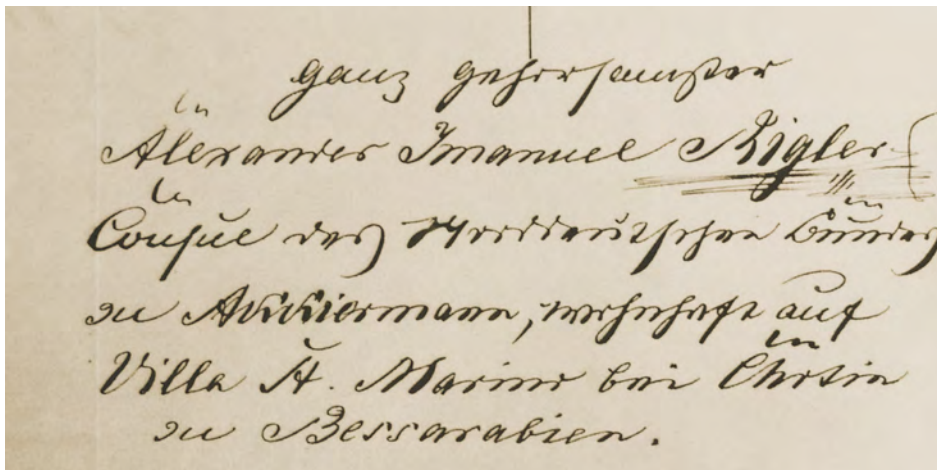 ganz gehorsamster
Alexander Imanuel Rigler
Consul des Norddeutschen Bundes
zu Akkiermann, wohnhaft auf
Villa St. Marino bei
zu Bessarabien.